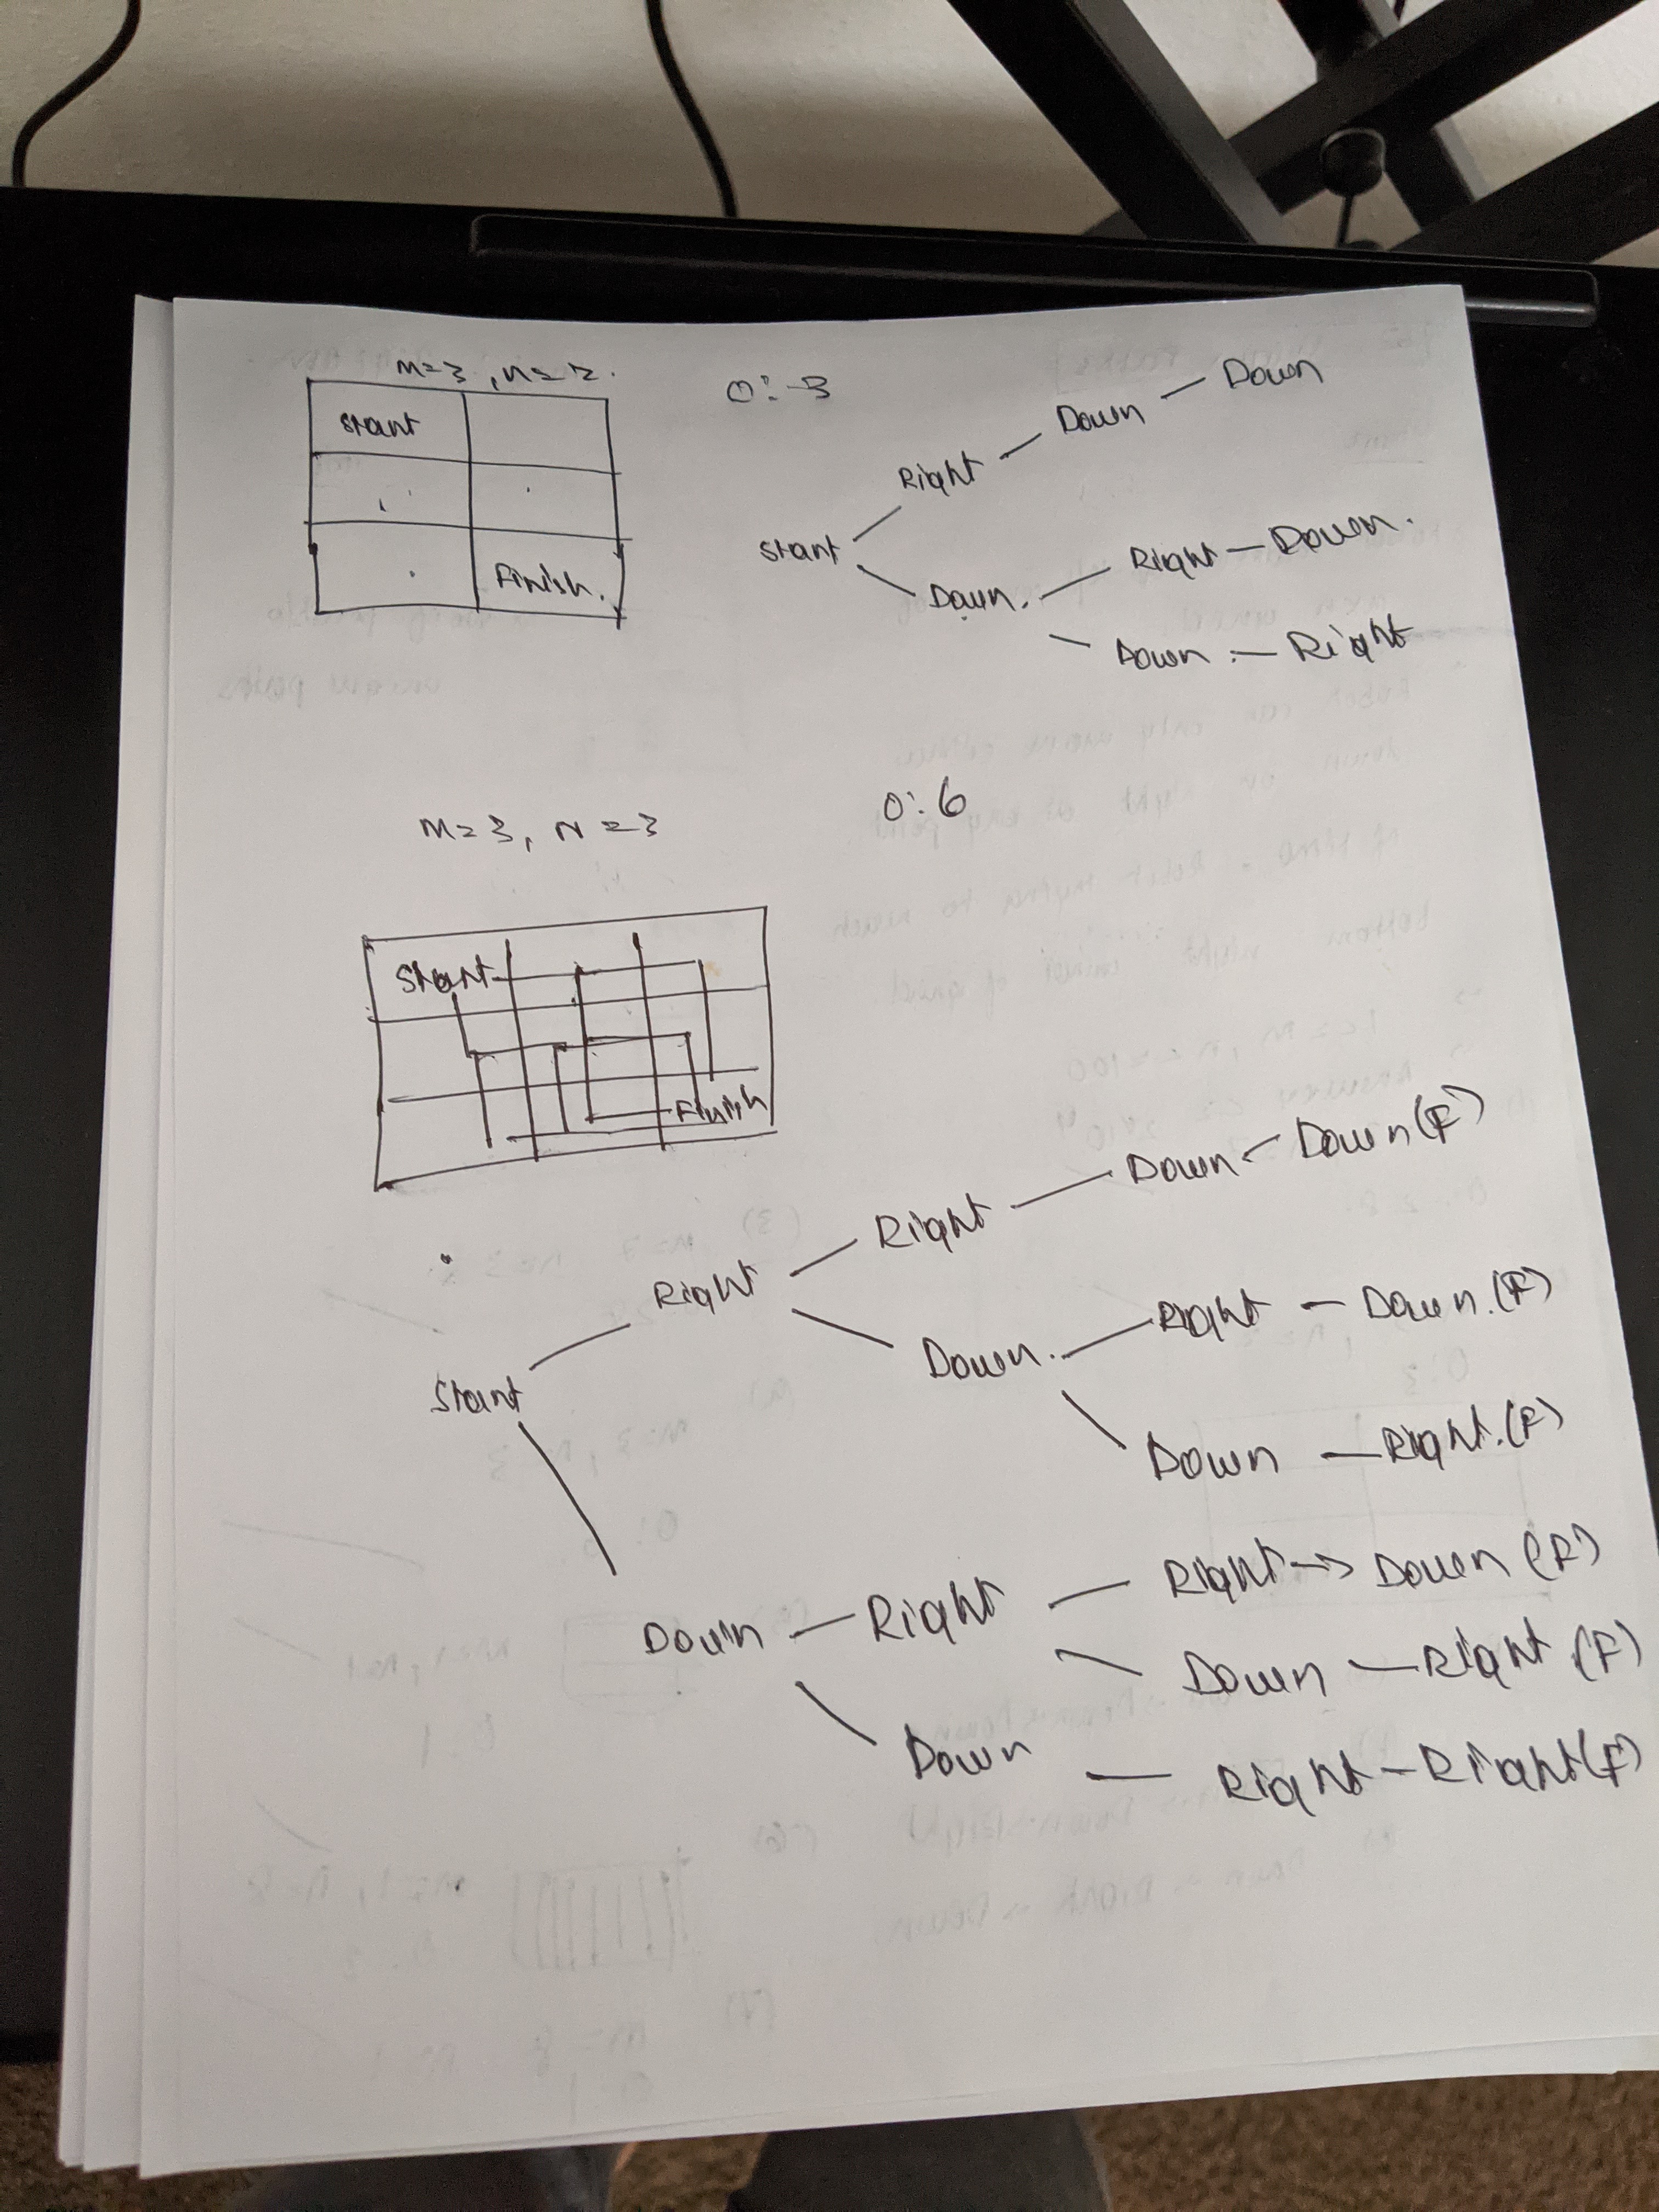 m=3, n=2.
O:-3
Start
Finish.
Start
Right
Down
Down
Down.
Right
Down.
Down
Right
m=3, n=3
O:6
Start
Finish
Start
Right
Right
Down
Down (F)
Down.
Right
Down. (F)
Down
Right. (F)
Down
Right
Right
Down (F)
Down
Right (F)
Down
Right
Right (F)